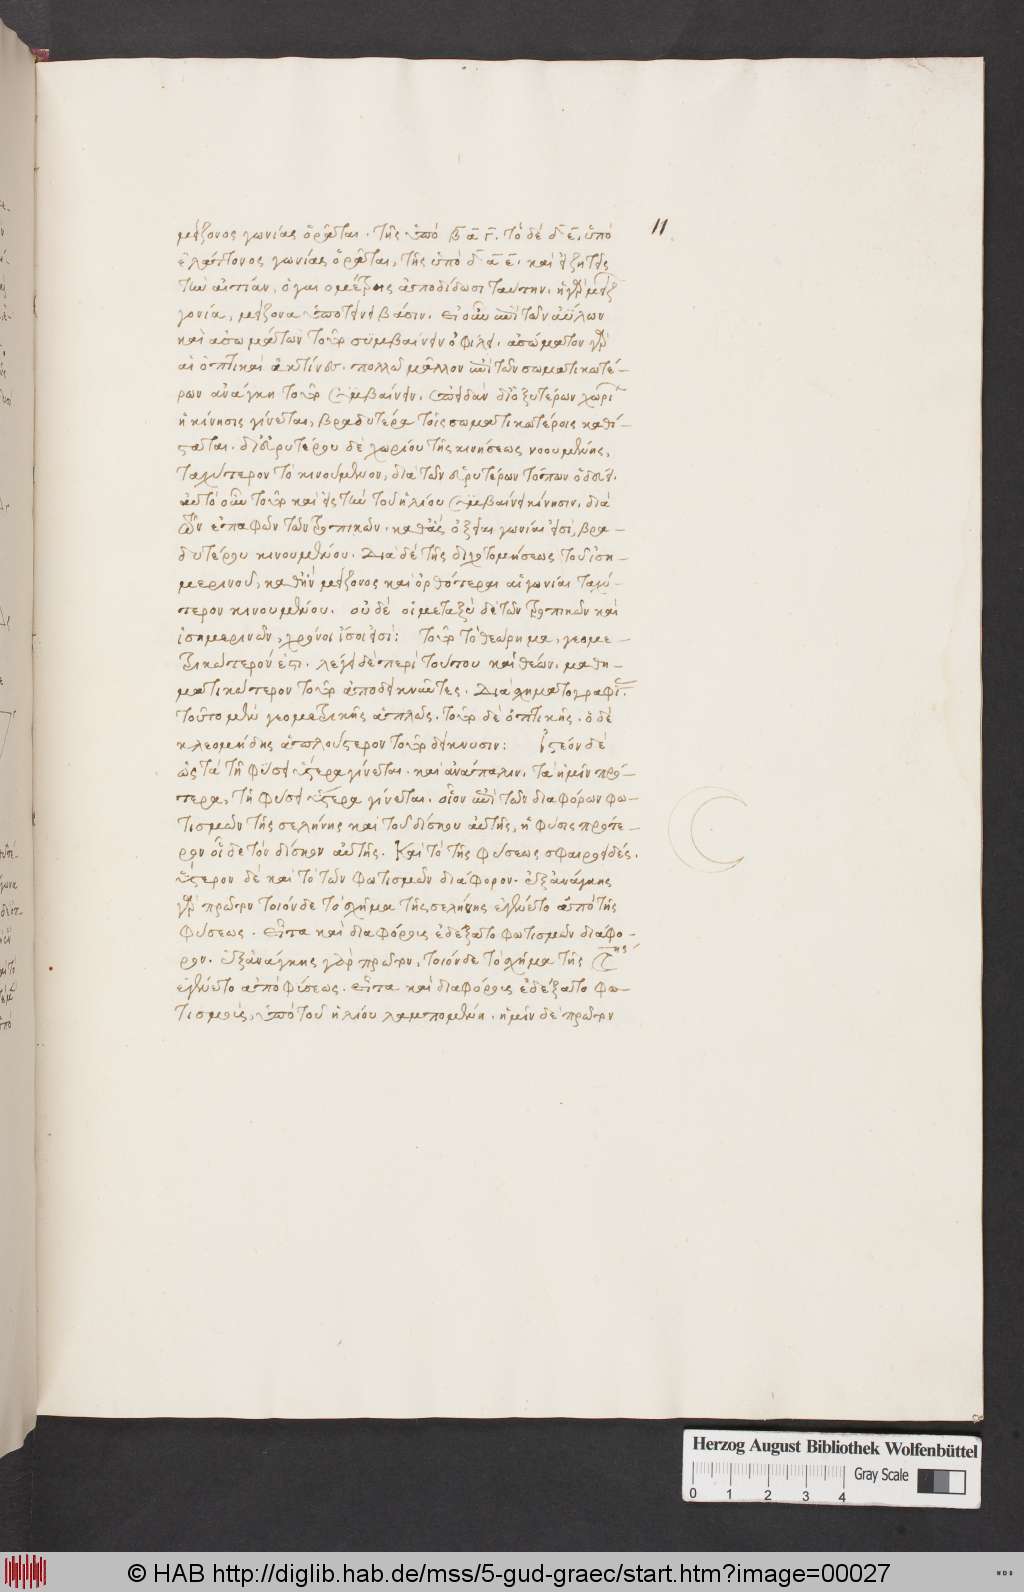 μείζονος γωνίας ὁρᾶται. τῆς ὑπὸ β̄ ᾱ γ̄. τὸ δὲ δ̄ ε̄, ὑπὸ
ἐλάττονος γωνίας ὁρᾶται, τῆς ὑπὸ δ̄ ᾱ ε̄. καὶ
τὴν αἰτίαν, ἀποδίδωσι ταύτην. ἡ γὰρ μείζ
γωνία, μείζονα ὑποτείνει βάσιν. εἰ οὖν ἐπὶ τῶν ἀΰλων
καὶ ἀσωμάτων τοῦτο συμβαίνειν ὀφείλει. ἀσώματοι γὰρ
αἱ ὀπτικαὶ ἀκτῖνες. πολλῷ μᾶλλον ἐπὶ τῶν σωματικωτέ-
ρων ἀνάγκη τοῦτο συμβαίνειν. χωρί
ἡ κίνησις γίνεται, βραδυτέρα τοῖς σωματικωτέροις καθί-
σταται. δι' εὐρυτέρου δὲ χωρίου τῆς κινήσεως νοουμένης,
ταχύτερον τὸ κινούμενον, διὰ τῶν εὐρυτέρων τόπων ὁδεύει.
αὐτὸ οὖν τοῦτο καὶ εἰς τὴν τοῦ ἡλίου συμβαίνει κίνησιν. διὰ
τῶν ἐπαφῶν τῶν τροπικῶν. καθ' ἃς ὀξεῖαι γωνίαι εἰσὶ, βρα-
δυτέρου κινουμένου. Διὰ δὲ τῆς διχοτομήσεως τοῦ ἰση-
μερινοῦ, καθ' ἣν μείζονος καὶ ὀρθότεραι αἱ γωνίαι ταχύ-
τερον κινουμένου. οὐδὲ οἱ μεταξὺ δὲ τῶν τροπικῶν καὶ
ἰσημερινῶν, χρόνοι ἴσοι εἰσί: τοῦτο τὸ θεώρημα, γεωμε-
τρικώτερόν ἐστι. λέγει δὲ περὶ τούτου καὶ θέων. μαθη-
ματικώτερον τοῦτο ἀποδεικνῦντες. Διὰ σχηματογραφί
τοῦτο μὲν γεωμετρικῆς ἁπλῶς. τοῦτο δὲ ὀπτικῆς. ὁ δὲ
κλεομήδης ἁπλούστερον τοῦτο δείκνυσιν: Ἰστέον δὲ
ὡς τὰ τῇ φύσει ὕστερα γίνεται. καὶ ἀνάπαλιν. τὰ ἡμῖν πρό-
τερα, τῇ φύσει ὕστερα γίνεται. οἷον ἐπὶ τῶν διαφόρων φω-
τισμῶν τῆς σελήνης καὶ τοῦ δίσκου αὐτῆς, ἡ φύσις πρότε-
ρον οἶδε τὸν δίσκον αὐτῆς. Καὶ τὸ τῆς φύσεως σφαιροειδές.
ὕστερον δὲ καὶ τὸ τῶν φωτισμῶν διάφορον. ἐξ ἀνάγκης
γὰρ πρῶτον τοιόνδε τὸ σχῆμα τῆς σελήνης ἐγένετο ἀπὸ τῆς
φύσεως. εἶτα καὶ διαφόρους ἐδέξατο φωτισμῶν διαφο-
ρον. ἐξ ἀνάγκης γὰρ πρῶτον, τοιόνδε τὸ σχῆμα τῆς
ἐγένετο ἀπὸ φύσεως. εἶτα καὶ διαφόρους ἐδέξατο φω-
τισμοὺς, ὑπὸ τοῦ ἡλίου λαμπομένη. ἡμῖν δὲ πρῶτον
11
Herzog August Bibliothek Wolfenbüttel
Gray Scale
0 1 2 3 4
© HAB http://diglib.hab.de/mss/5-gud-graec/start.htm?image=00027